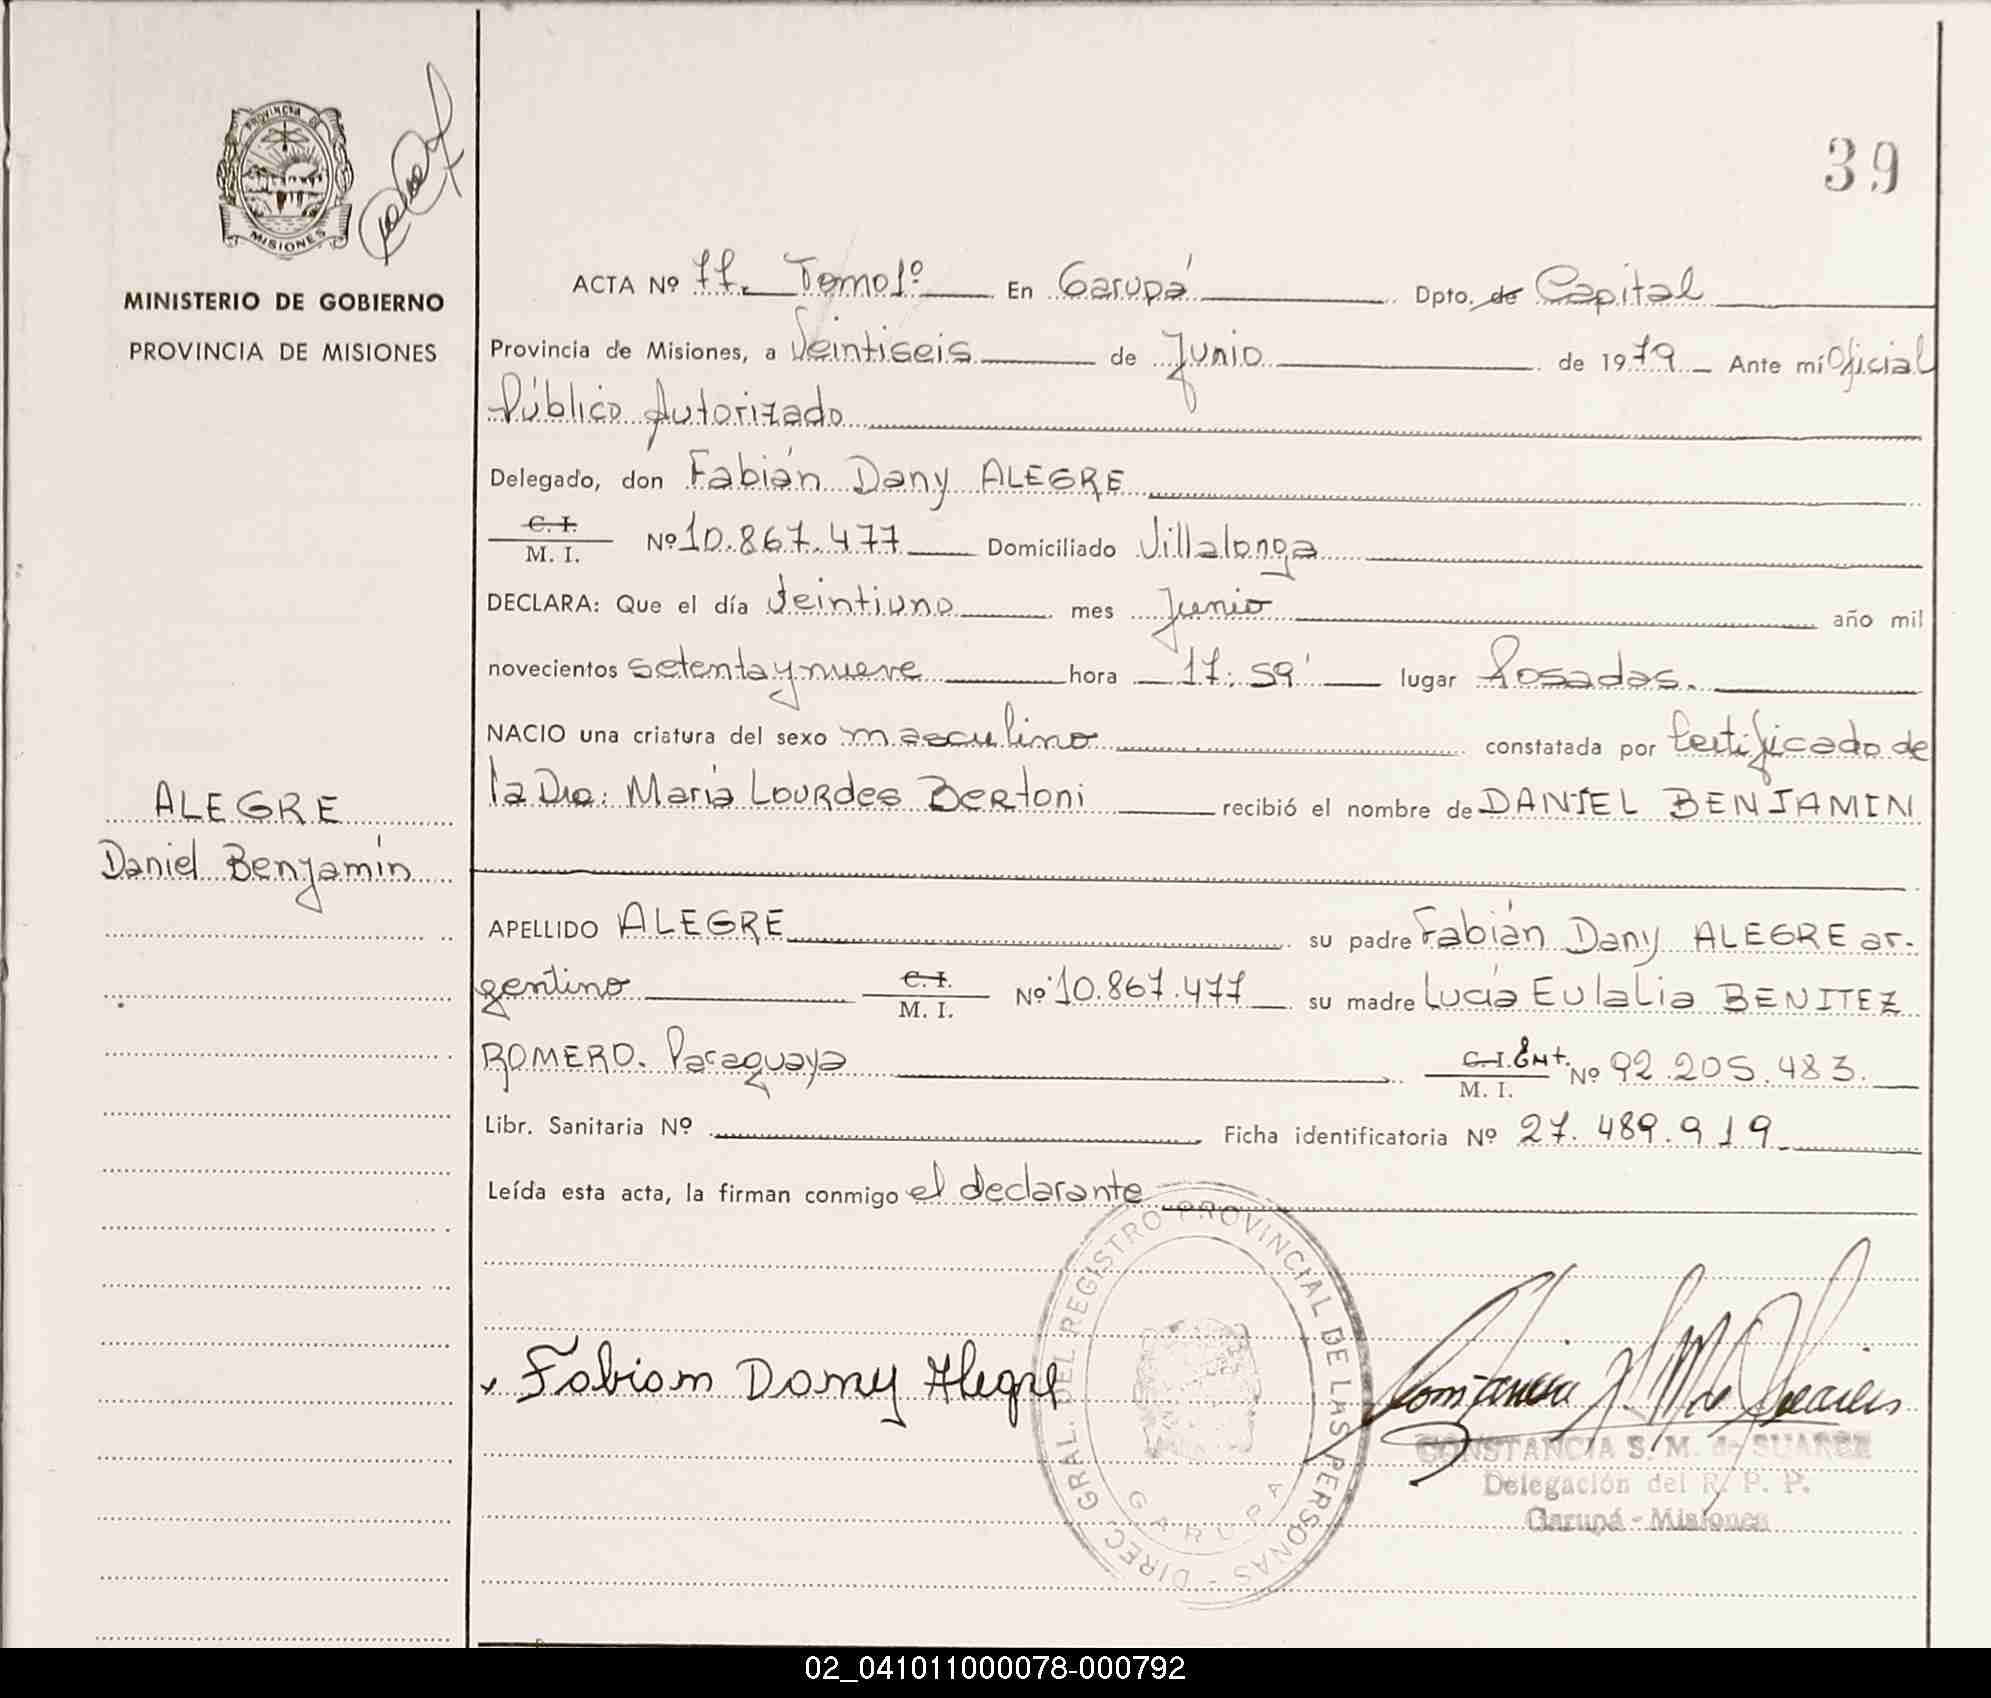 PROVINCIA DE
MISIONES
MINISTERIO DE GOBIERNO
PROVINCIA DE MISIONES
39
ACTA Nº 77. Tomo 1º En Garupá Dpto. de Capital
Provincia de Misiones, a Veintiseis de Junio de 1979 Ante mí Oficial
Público Autorizado
Delegado, don Fabián Dany ALEGRE
C. I.
M. I. Nº 10.867.477 Domiciliado Villalonga
DECLARA: Que el día Veintiuno mes Junio año mil
novecientos setenta y nueve hora 17:59' lugar Posadas.
NACIO una criatura del sexo masculino constatada por Certificado de
la Dra: María Lourdes Bertoni recibió el nombre de DANIEL BENJAMIN
ALEGRE
Daniel Benjamín
APELLIDO ALEGRE su padre Fabián Dany ALEGRE ar-
gentino C. I.
M. I. Nº 10.867.477 su madre Lucía Eulalia BENITEZ
ROMERO. Paraguaya C. I. Ext.
M. I. Nº 92.205.483.
Libr. Sanitaria Nº Ficha identificatoria Nº 27.489.919
Leída esta acta, la firman conmigo el declarante
Fabian Dany Alegre
DIREC. GRAL. DEL REGISTRO PROVINCIAL DE LAS PERSONAS -
GARUPA
CONSTANCIA S. M. de SUAREZ
Delegación del R. P. P.
Garupá - Misiones
02_041011000078-000792